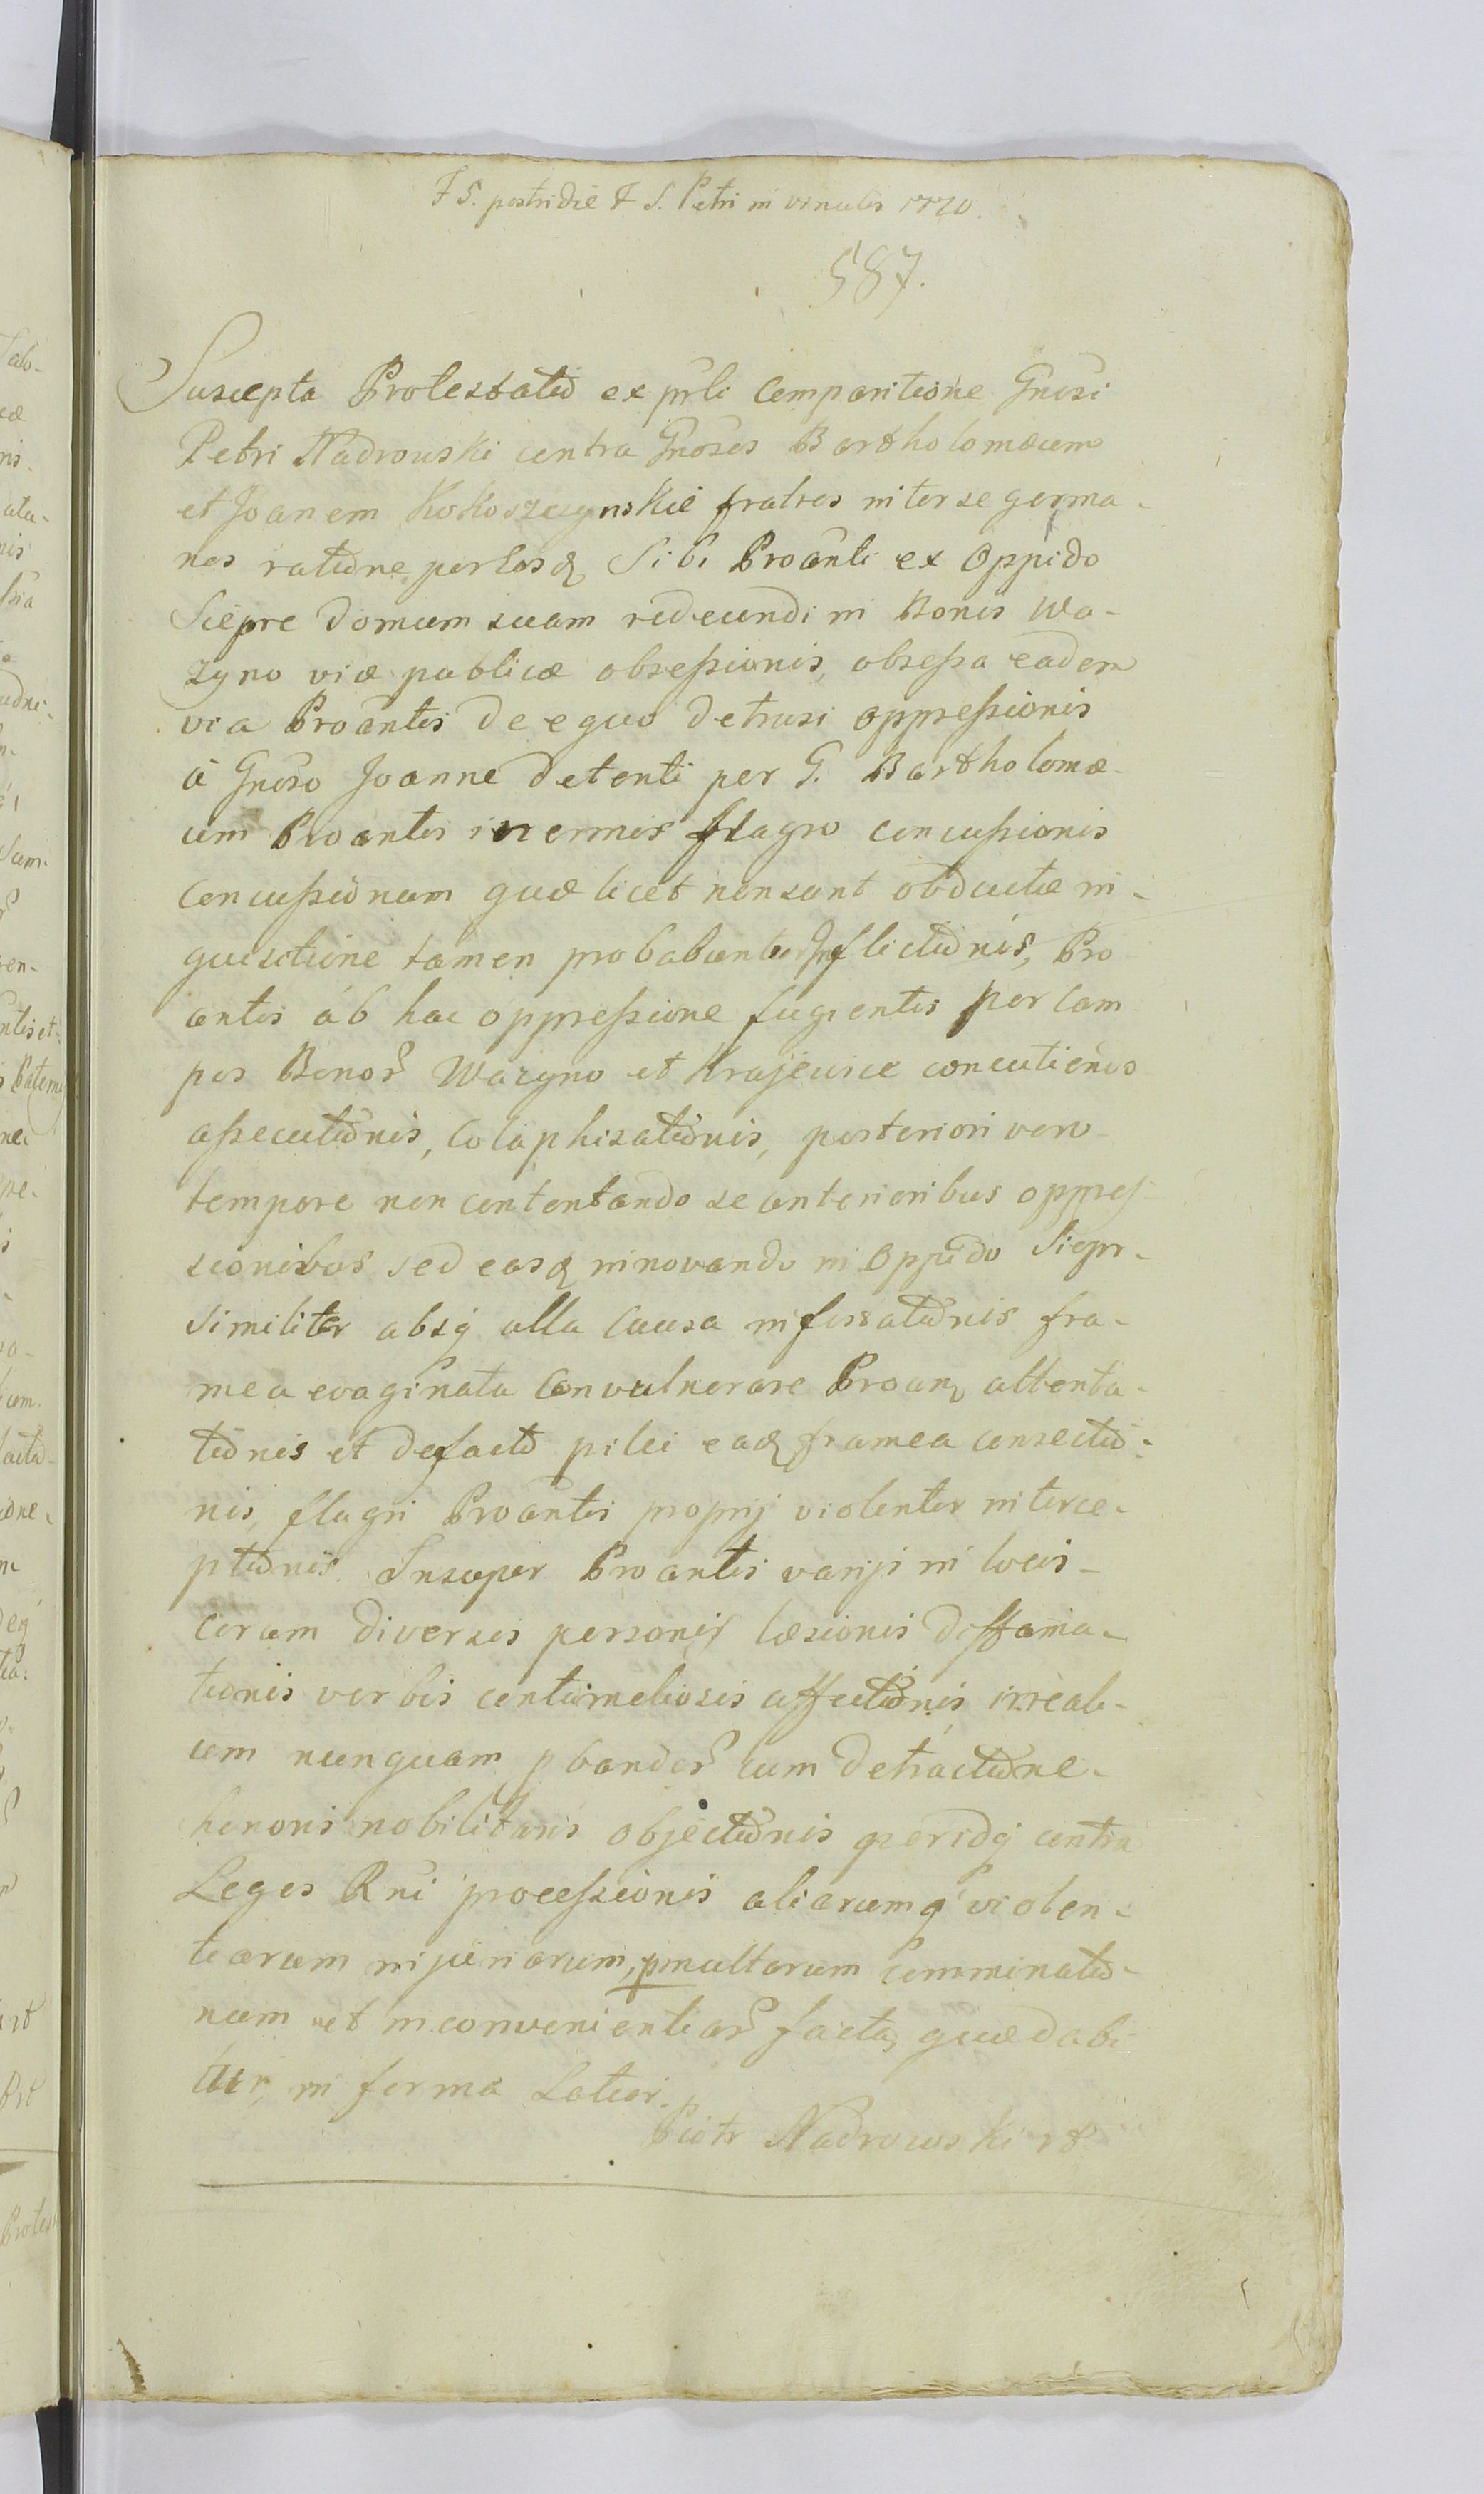 F 5. postridie F S. Petri in vinculis 1720.
587.
Suscepta Protestatio ex prli Comparitione Gnosi
Petri Nadrowski contra Gnosos Bartholomæum
et Joanem Kokoszczynskie fratres inter se germa-
nos ratione per eosd Sibi Proanti ex Oppido
Sierpc domum suam redeundi in Bonis Wa-
zyno viæ publicæ obsessionis, obsessa eadem
via Proantis de equo detrusi oppressionis
à Gnoso Joanne detenti per G. Bartholomæ-
um Proantis inermis flagro concussionis
Concussionum quæ licet non sunt obductæ in-
quisitione tamen probabuntur Inflictionis, Pro
antis ab hac oppressione fugientis per Cam
pos Bonor Wazyno et Krajewice concutiendo
assecutionis, Colaphisationis, posteriori vero
tempore non contentando se anterioribus oppres
sionibus sed easd innovando in Oppido Sierpc-
Similiter absq ulla Causa infestationis fra-
mea evaginata Convulnerare Proan attenta-
tionis et de facto pilei ead framea consectio-
nis, flagri Proantis proprij violenter interce-
ptionis. Insuper Proantis varijs in locis
Coram diversis personis læsionis diffama-
tionis verbis contumeliosis affectionis irreali-
um nunquam pbandor cum detractione
honoris nobilitaris objectionis peridq contra
Leges Rni processionis aliarumq violen-
tiarum injuriarum, pmultarum Comminatio-
num et inconvenientiar facta, quæ dabi
tur, in forma Latiori.
Piotr Nadrowski